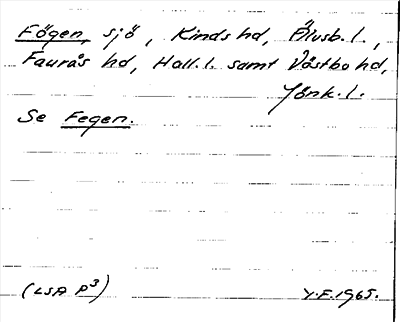 Fögen, sjö, Kinds hd, Älvsb. l.,
Faurås hd, Hall. l. samt Västbo hd,
Jönk. l.
Se Fegen.
(LSA P3) Y.F. 1965.